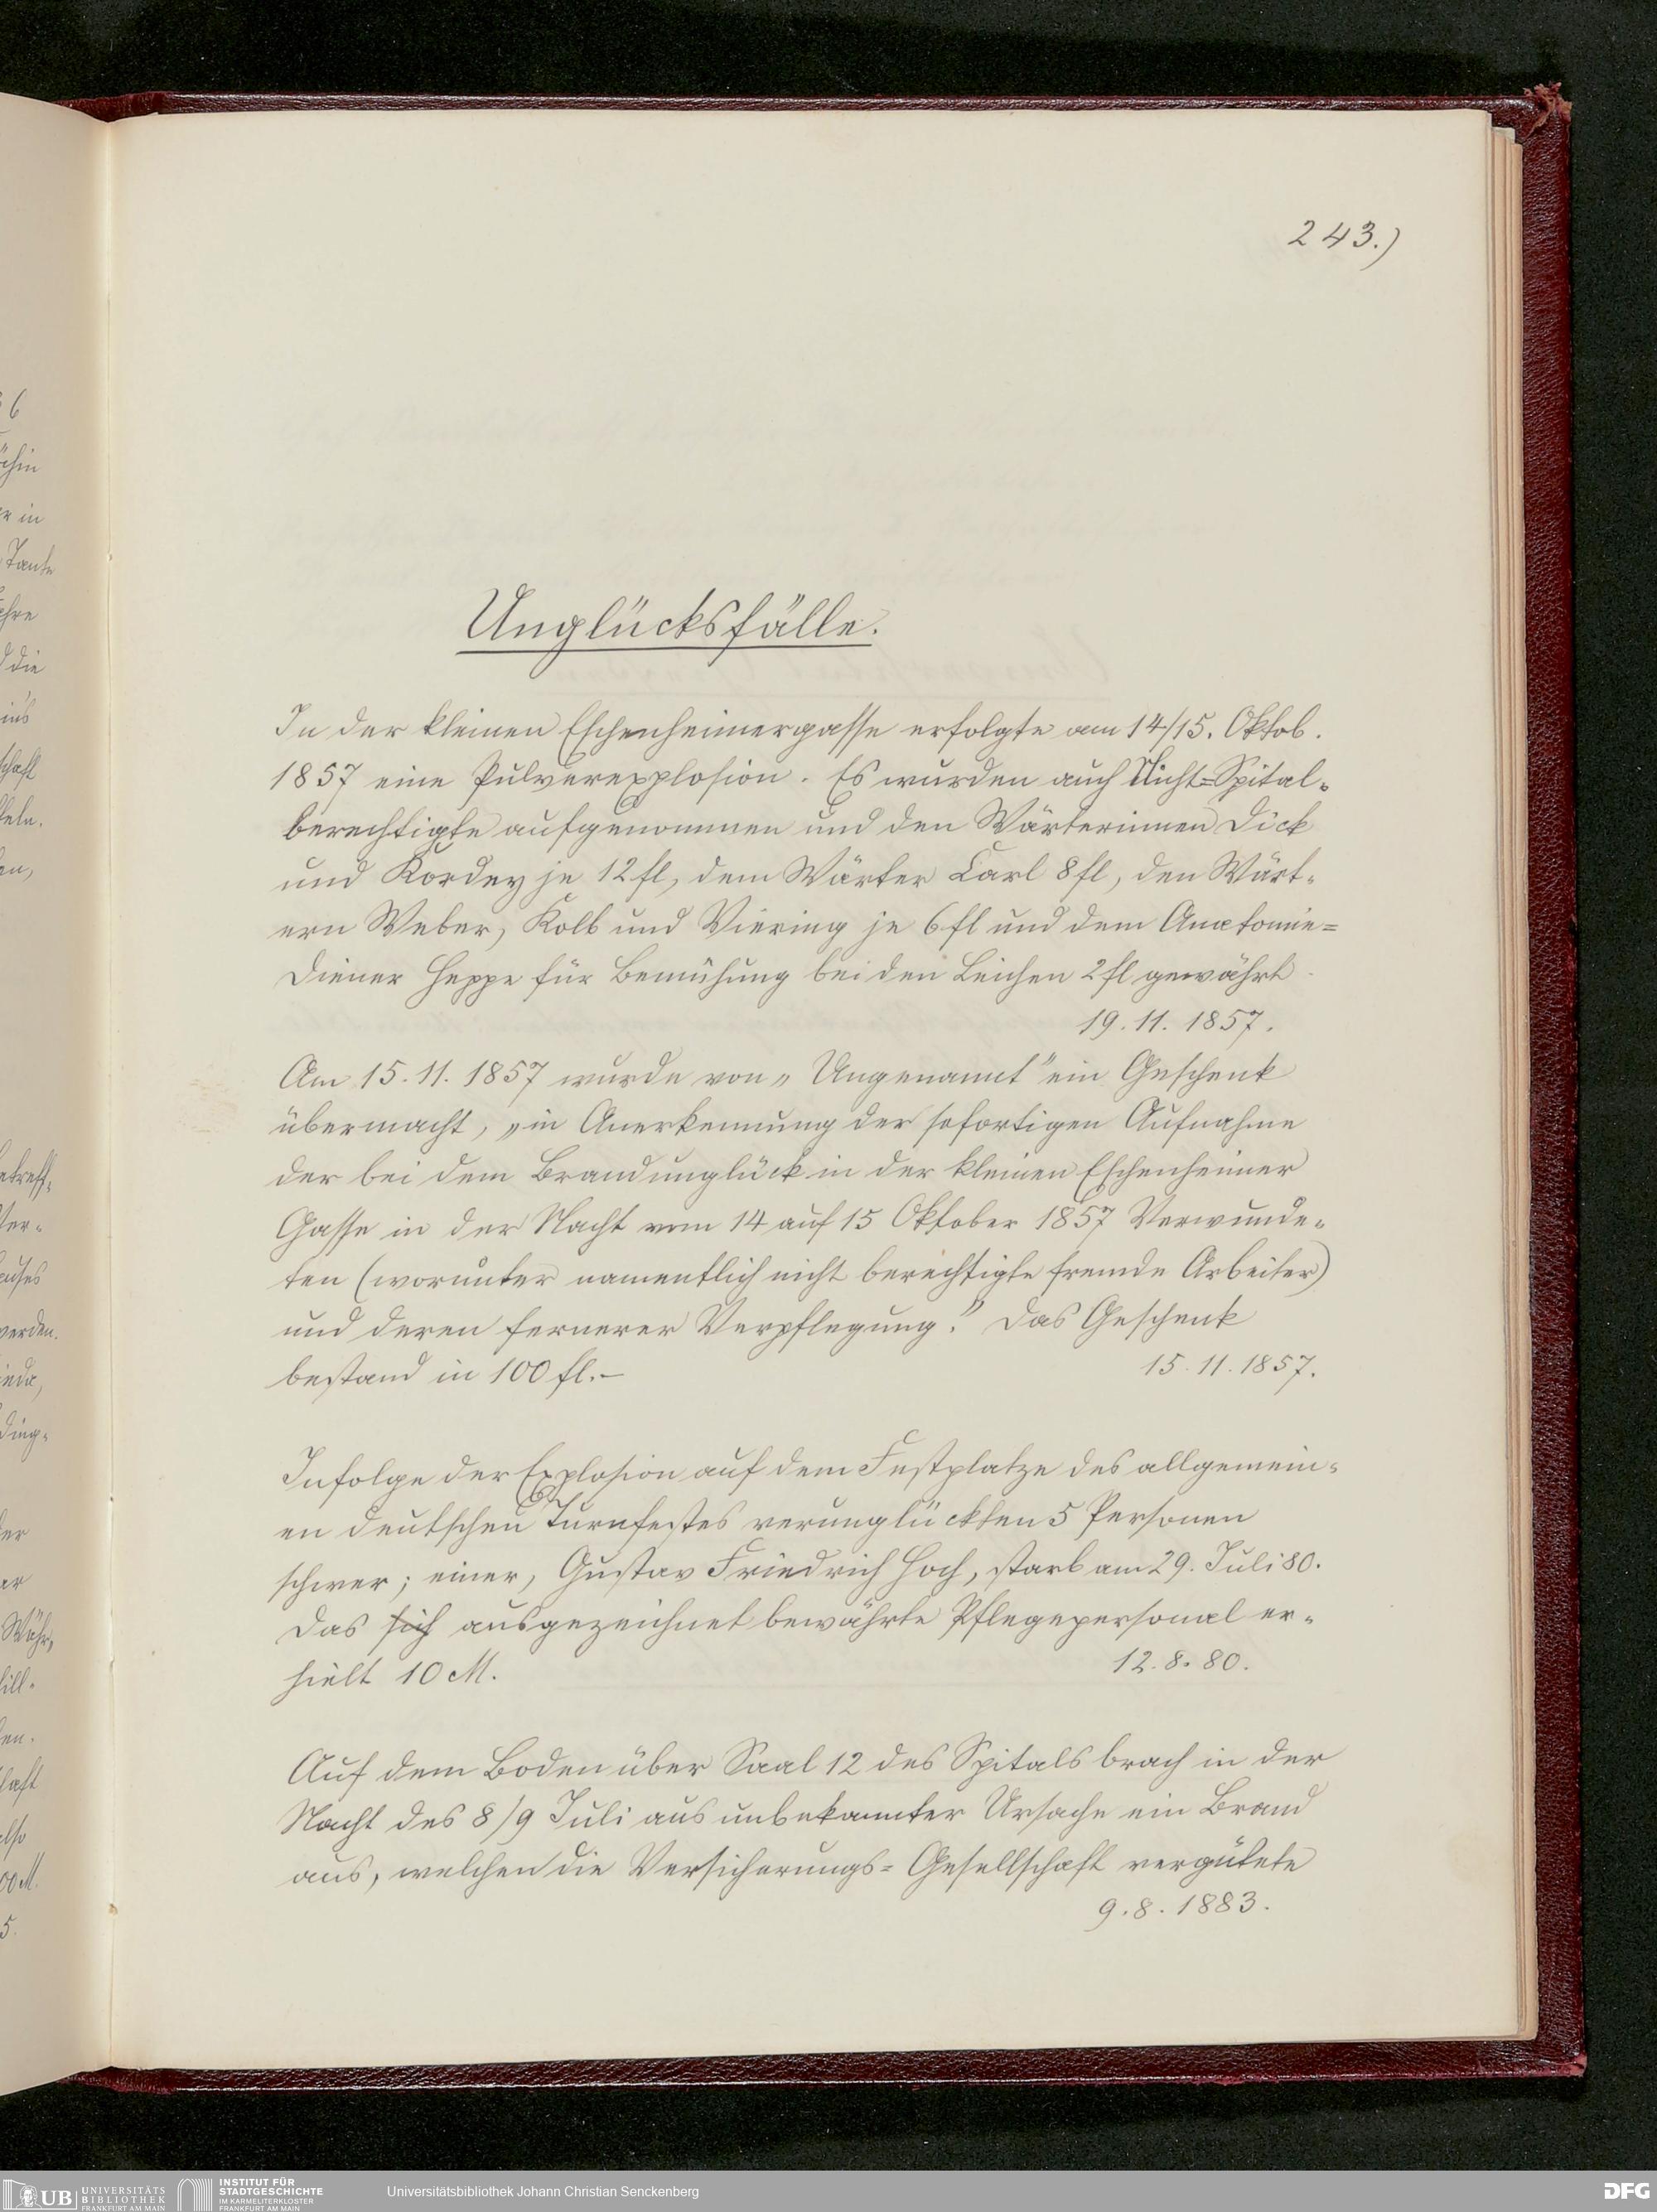 243.)
Unglücksfälle.
In der kleinen Eschenheimergasse erfolgte am 14/15. Oktob.
1857 eine Pulverexplosion. Es wurden auch Nicht-Spital-
berechtigte aufgenommen und den Wärterinnen Dick
und Kordey je 12 fl, dem Wärter Carl 8 fl, den Wärt-
ern Weber, Kolb und Viering je 6 fl und dem Anatomie-
diener Heppe für Bemühung bei den Leichen 2 fl gewährt.
19. 11. 1857.
Am 15. 11. 1857 wurde von „Ungenannt" ein Geschenk
übermacht, „in Anerkennung der sofortigen Aufnahme
der bei dem Brandunglück in der kleinen Eschenheimer
Gasse in der Nacht vom 14 auf 15 Oktober 1857 Verwunde-
ten (worunter namentlich nicht berechtigte fremde Arbeiter)
und deren fernerer Verpflegung." Das Geschenk
bestand in 100 fl.–
15. 11. 1857.
Infolge der Explosion auf dem Festplatze des allgemein-
en deutschen Turnfestes verunglückten 5 Personen
schwer; einer, Gustav Friedrich Hoch, starb am 29. Juli 80.
Das sich ausgezeichnet bewährte Pflegepersonal er-
hielt 10 M.
12. 8. 80.
Auf dem Boden über Saal 12 des Spitals brach in der
Nacht des 8/9 Juli aus unbekannter Ursache ein Brand
aus, welchen die Versicherungs-Gesellschaft vergütete
9. 8. 1883.
UB UNIVERSITÄTS
BIBLIOTHEK
FRANKFURT AM MAIN
INSTITUT FÜR
STADTGESCHICHTE
IM KARMELITERKLOSTER
FRANKFURT AM MAIN
Universitätsbibliothek Johann Christian Senckenberg
DFG